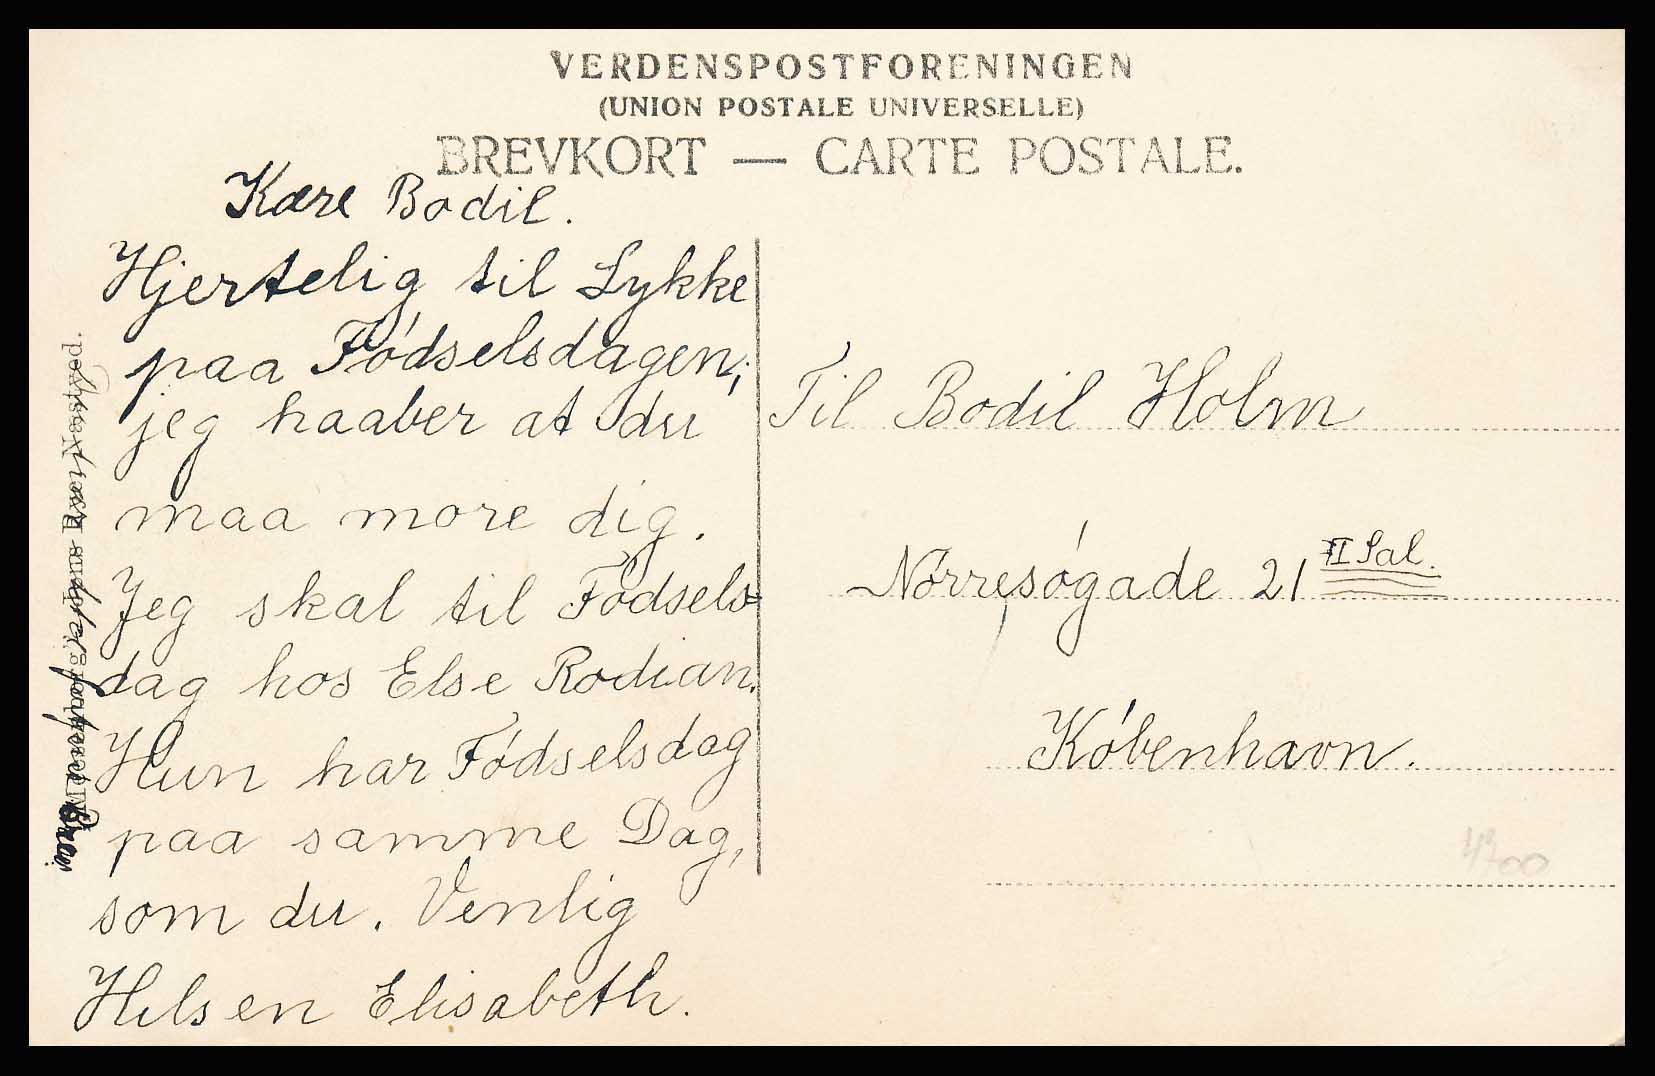 VERDENSPOSTFORENINGEN
(UNION POSTALE UNIVERSELLE)
BREVKORT — CARTE POSTALE.
Kære Bodil.
Hjertelig til Lykke
paa Fódselsdagen;
jeg haaber at du
maa more dig.
Jeg skal til Fódsels-
dag hos Else Rodian.
Hun har Fódselsdag
paa samme Dag,
som du. Venlig
Hilsen Elisabeth.
Til Bodil Holm
Nórresógade 21 II Sal.
Kóbenhavn.
4700